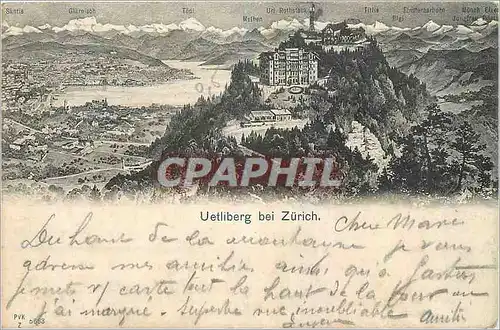 Säntis Glärnisch Tödi Ruchen Uri Rothstock Titlis Rigi Finsteraarhorn Mönch Eiger Jungfrau
CPAPHIL
Uetliberg bei Zürich.
Cher Mari
Du haut de la montagne je vous
adresse mes amitiés ainsi qu'a
je mets v/ carte sur le haut de la tour
j'ai marqué. Superbe vue inoubliable
amitiés
PVK
Z 5063